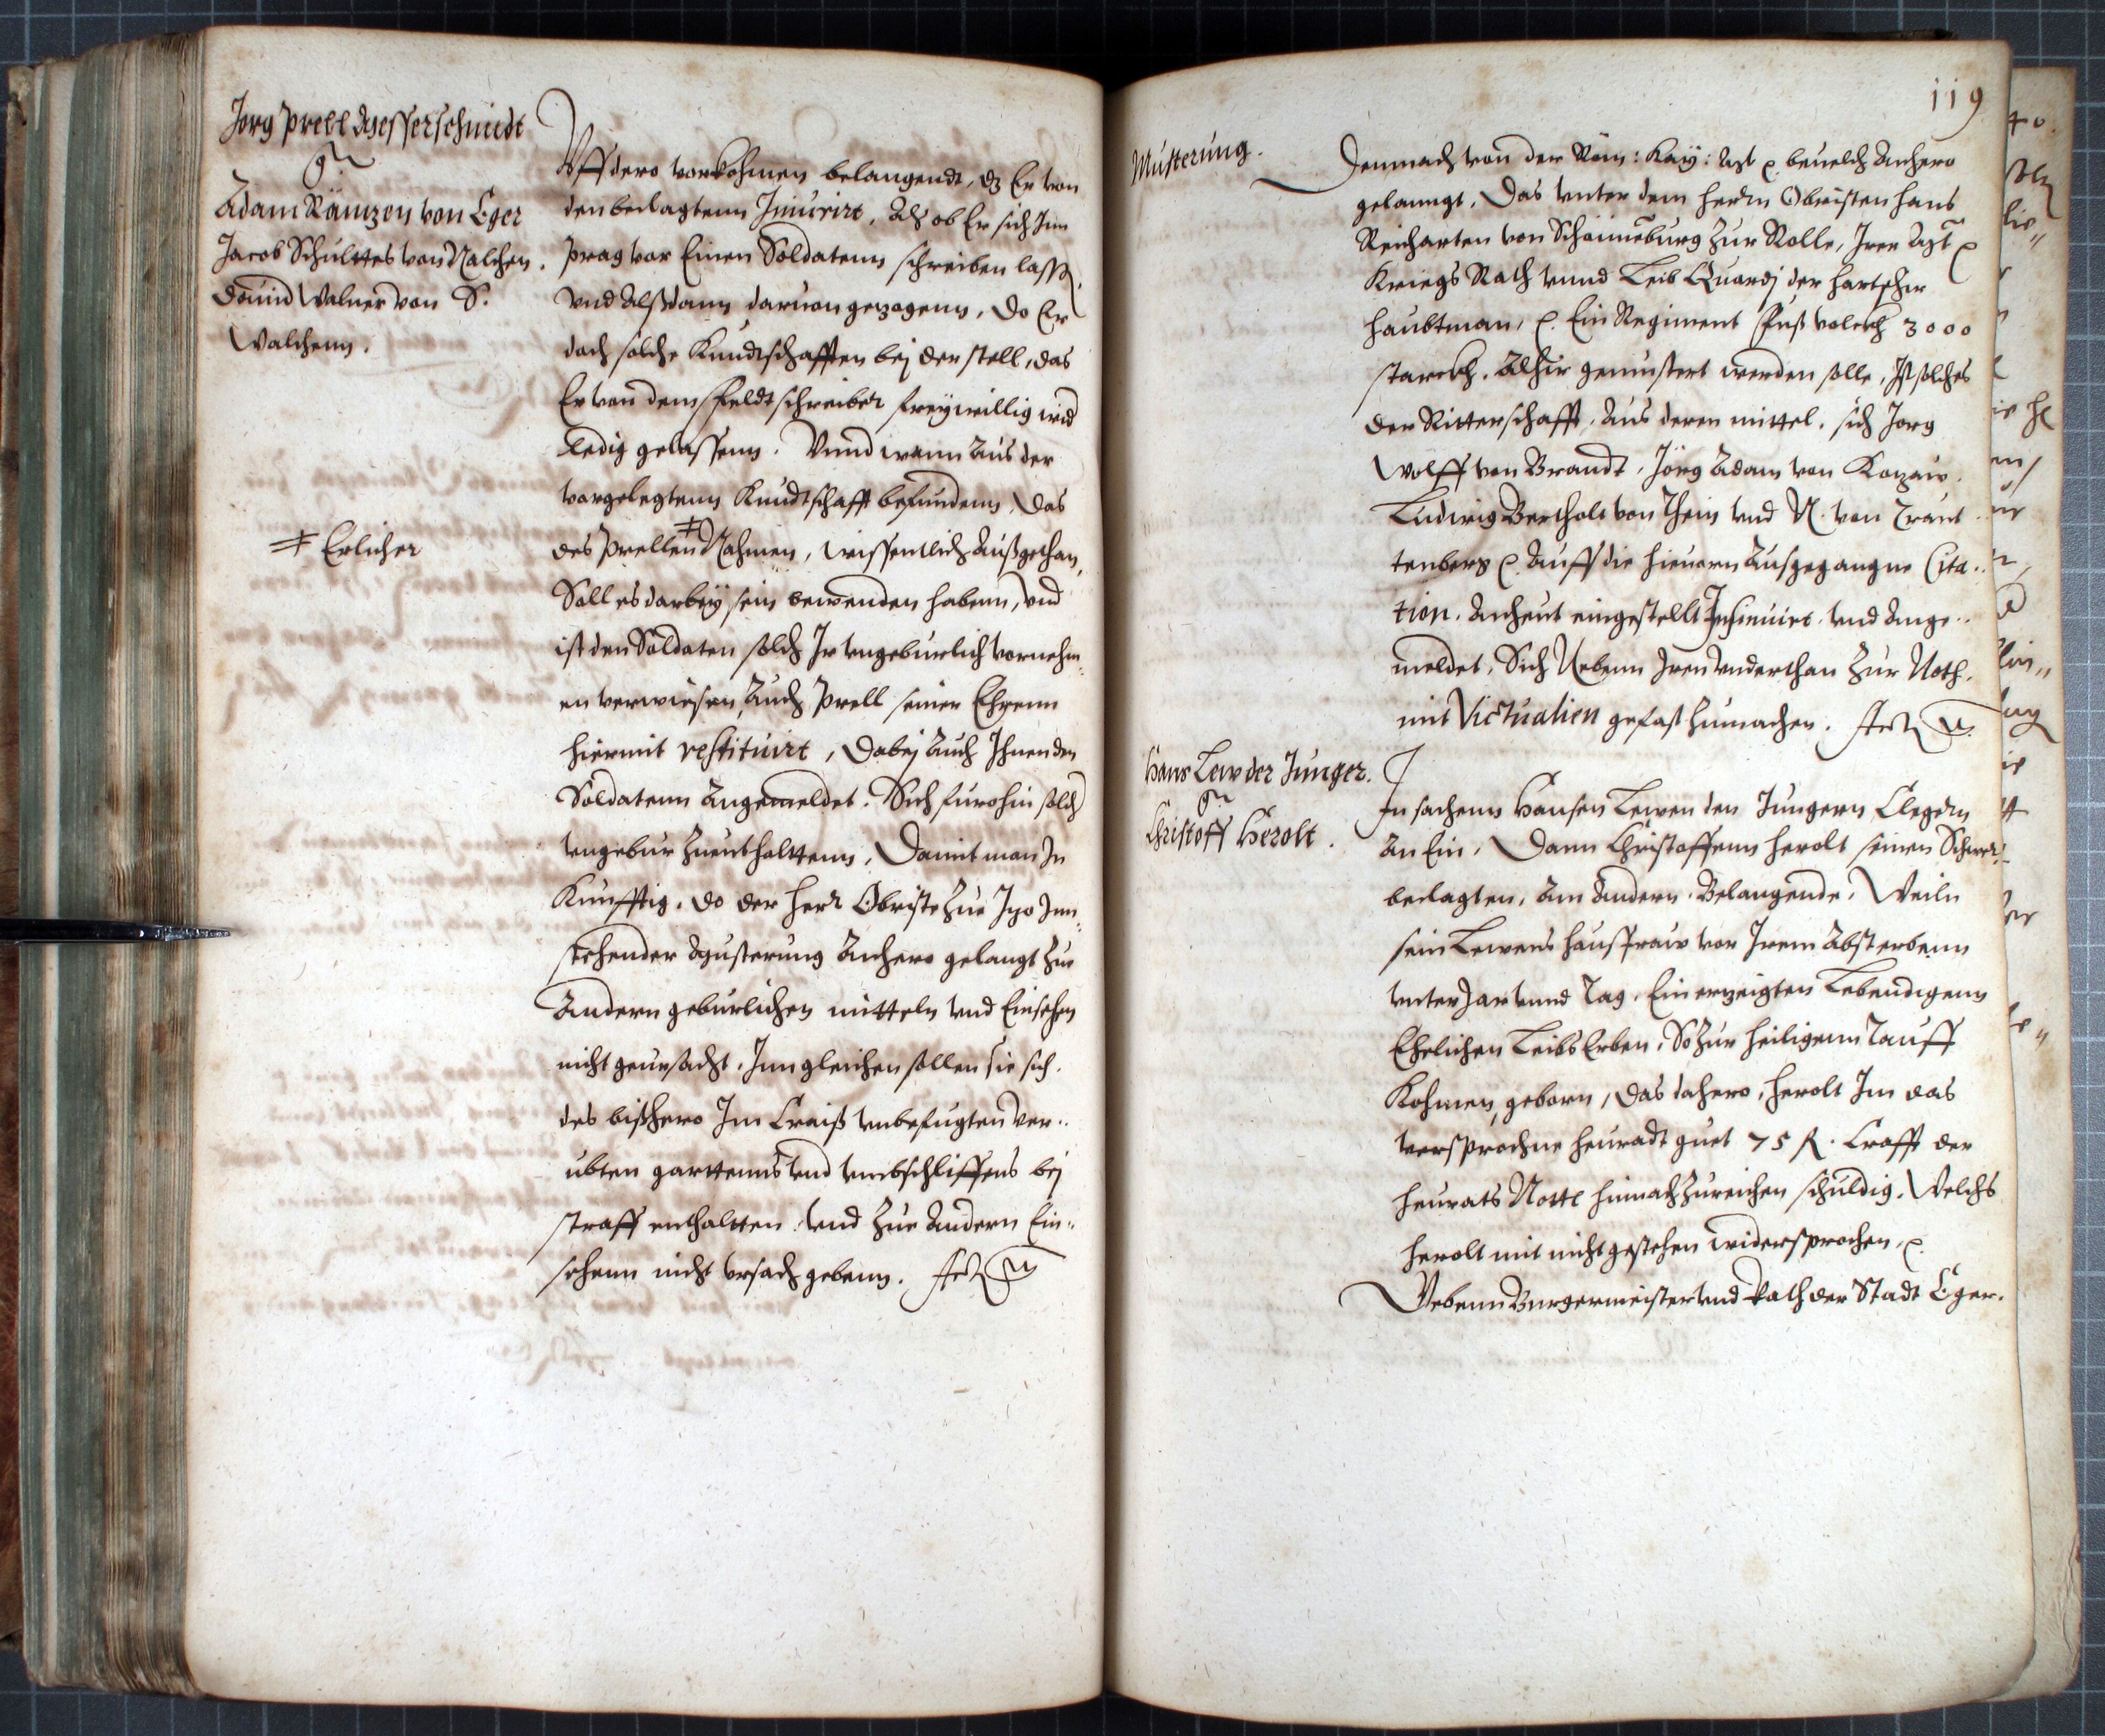 Jorg Prell Messerschmidt
Adam Rämzen von Eger
Jacob Schulttes von Nalchen.
Dauid Walner von S.
Walchenn.
Vff dero vorkohmen belangendt, dz Er von
den beclagtenn Iniurirt, Alß ob Er sich Inn
Prag vor Einen Soldatenn schreiben lassen,
vnd Alßdann daruon gezogenn, do Er
doch solche Kundtschafften bej der stell, das
Er von dem Feldtschreiber freywillig vnd
Ledig gelassenn. Vnnd wann Aus der
vorgelegtenn Kundtschafft befundenn, Das
≠ Erlicher
des Prellen ≠ Nahmen, wissentlich Außgethan,
Soll es darbey sein bewenden habenn, vnd
ist den Soldaten solch Ir vngebürlich vornehm-
en verwiesen, Auch Prell seiner Ehrenn
hiermit restituirt, Dabej Auch Ihnen den
Soldatenn Angemeldet. Sich furohin solch
vngebur Zuenthalttenn, Damit man In
Kunfftig, do der Herr Obriste Zue Izo Inn-
stehender Musterung Anhero gelangt Zue
Andern gebürlichen mitteln vnd Einsehen
nicht geursacht, Inngleichen sollen sie sich
des bißhero Im Craiß vnbefugten ver-
ubten garttenns vnd vmbschliffens bej
straff enthaltten, vnd Zue Andern Ein-
sehenn nicht vrsach gebenn.
119
Musterung.
Demnach von der Röm: Kay: Mt beuelch Anhero
gelanngt, Das vnter dem herrn Obristen Hans
Reicharten von Schönneburg Zur Rolle, Irer Mt
Kriegs Rath vnnd Leib Quardj der Hartschir
Haubtman, Ein Regiment Fuß volckh 3000
starckh. Alhir gemustert werden solle, Ist solches
der Ritterschafft, Aus deren mittel, sich Jorg
Wolff von Brandt, Jörg Adam von Kozaw
Ludwig Bertholt von Thein vnd N. von Traut
tenberg Auff die hieuorn Ausgegangne Cita-
tion, Anheut eingestellt Insinuirt vnd Ange-
meldet, Sich Nebenn Iren Vnderthan Zur Noth,
mit Victualien gefast Zumachen.
Hans Lew der Junger.
Christoff Herolt.
In sachenn Hansen Lewen den Jungern Clegern
An Ein, Dann Christoffenn Herolt seinen Schwer
beclagten, Am Andern Belangende, Weiln
sein Lewens Hausfraw vor Irem Absterbenn
vnter Jar vnnd Tag, Ein erzeigten Lebendigenn
Ehelichen Leibs Erben, So Zur Heiligenn Tauff
Kohmen, geborn, Das dahero, Herolt Im das
versprochne Heuradt guet 75 fl. Crafft der
Heurats Nottl hinnach Zureichen schuldig, Welchs
Herolt mit nicht gestehen widersprochen,
Gebenn Burgermeister vnd Rath der Stadt Eger.